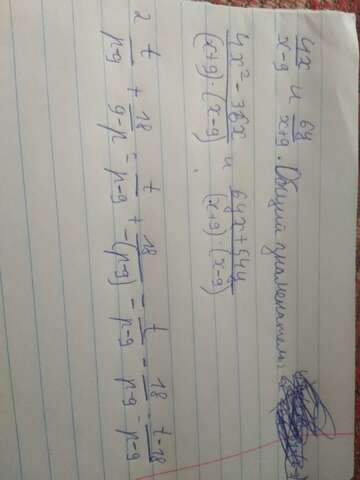 4x/x-9 и 6y/x+9. Общий знаменатель:
4x²-36x/(x+9)·(x-9) и 6yx+54y/(x+9)·(x-9)
2 t/p-9 + 18/9-p = t/p-9 + 18/-(p-9) = t/p-9 - 18/p-9 = t-18/p-9